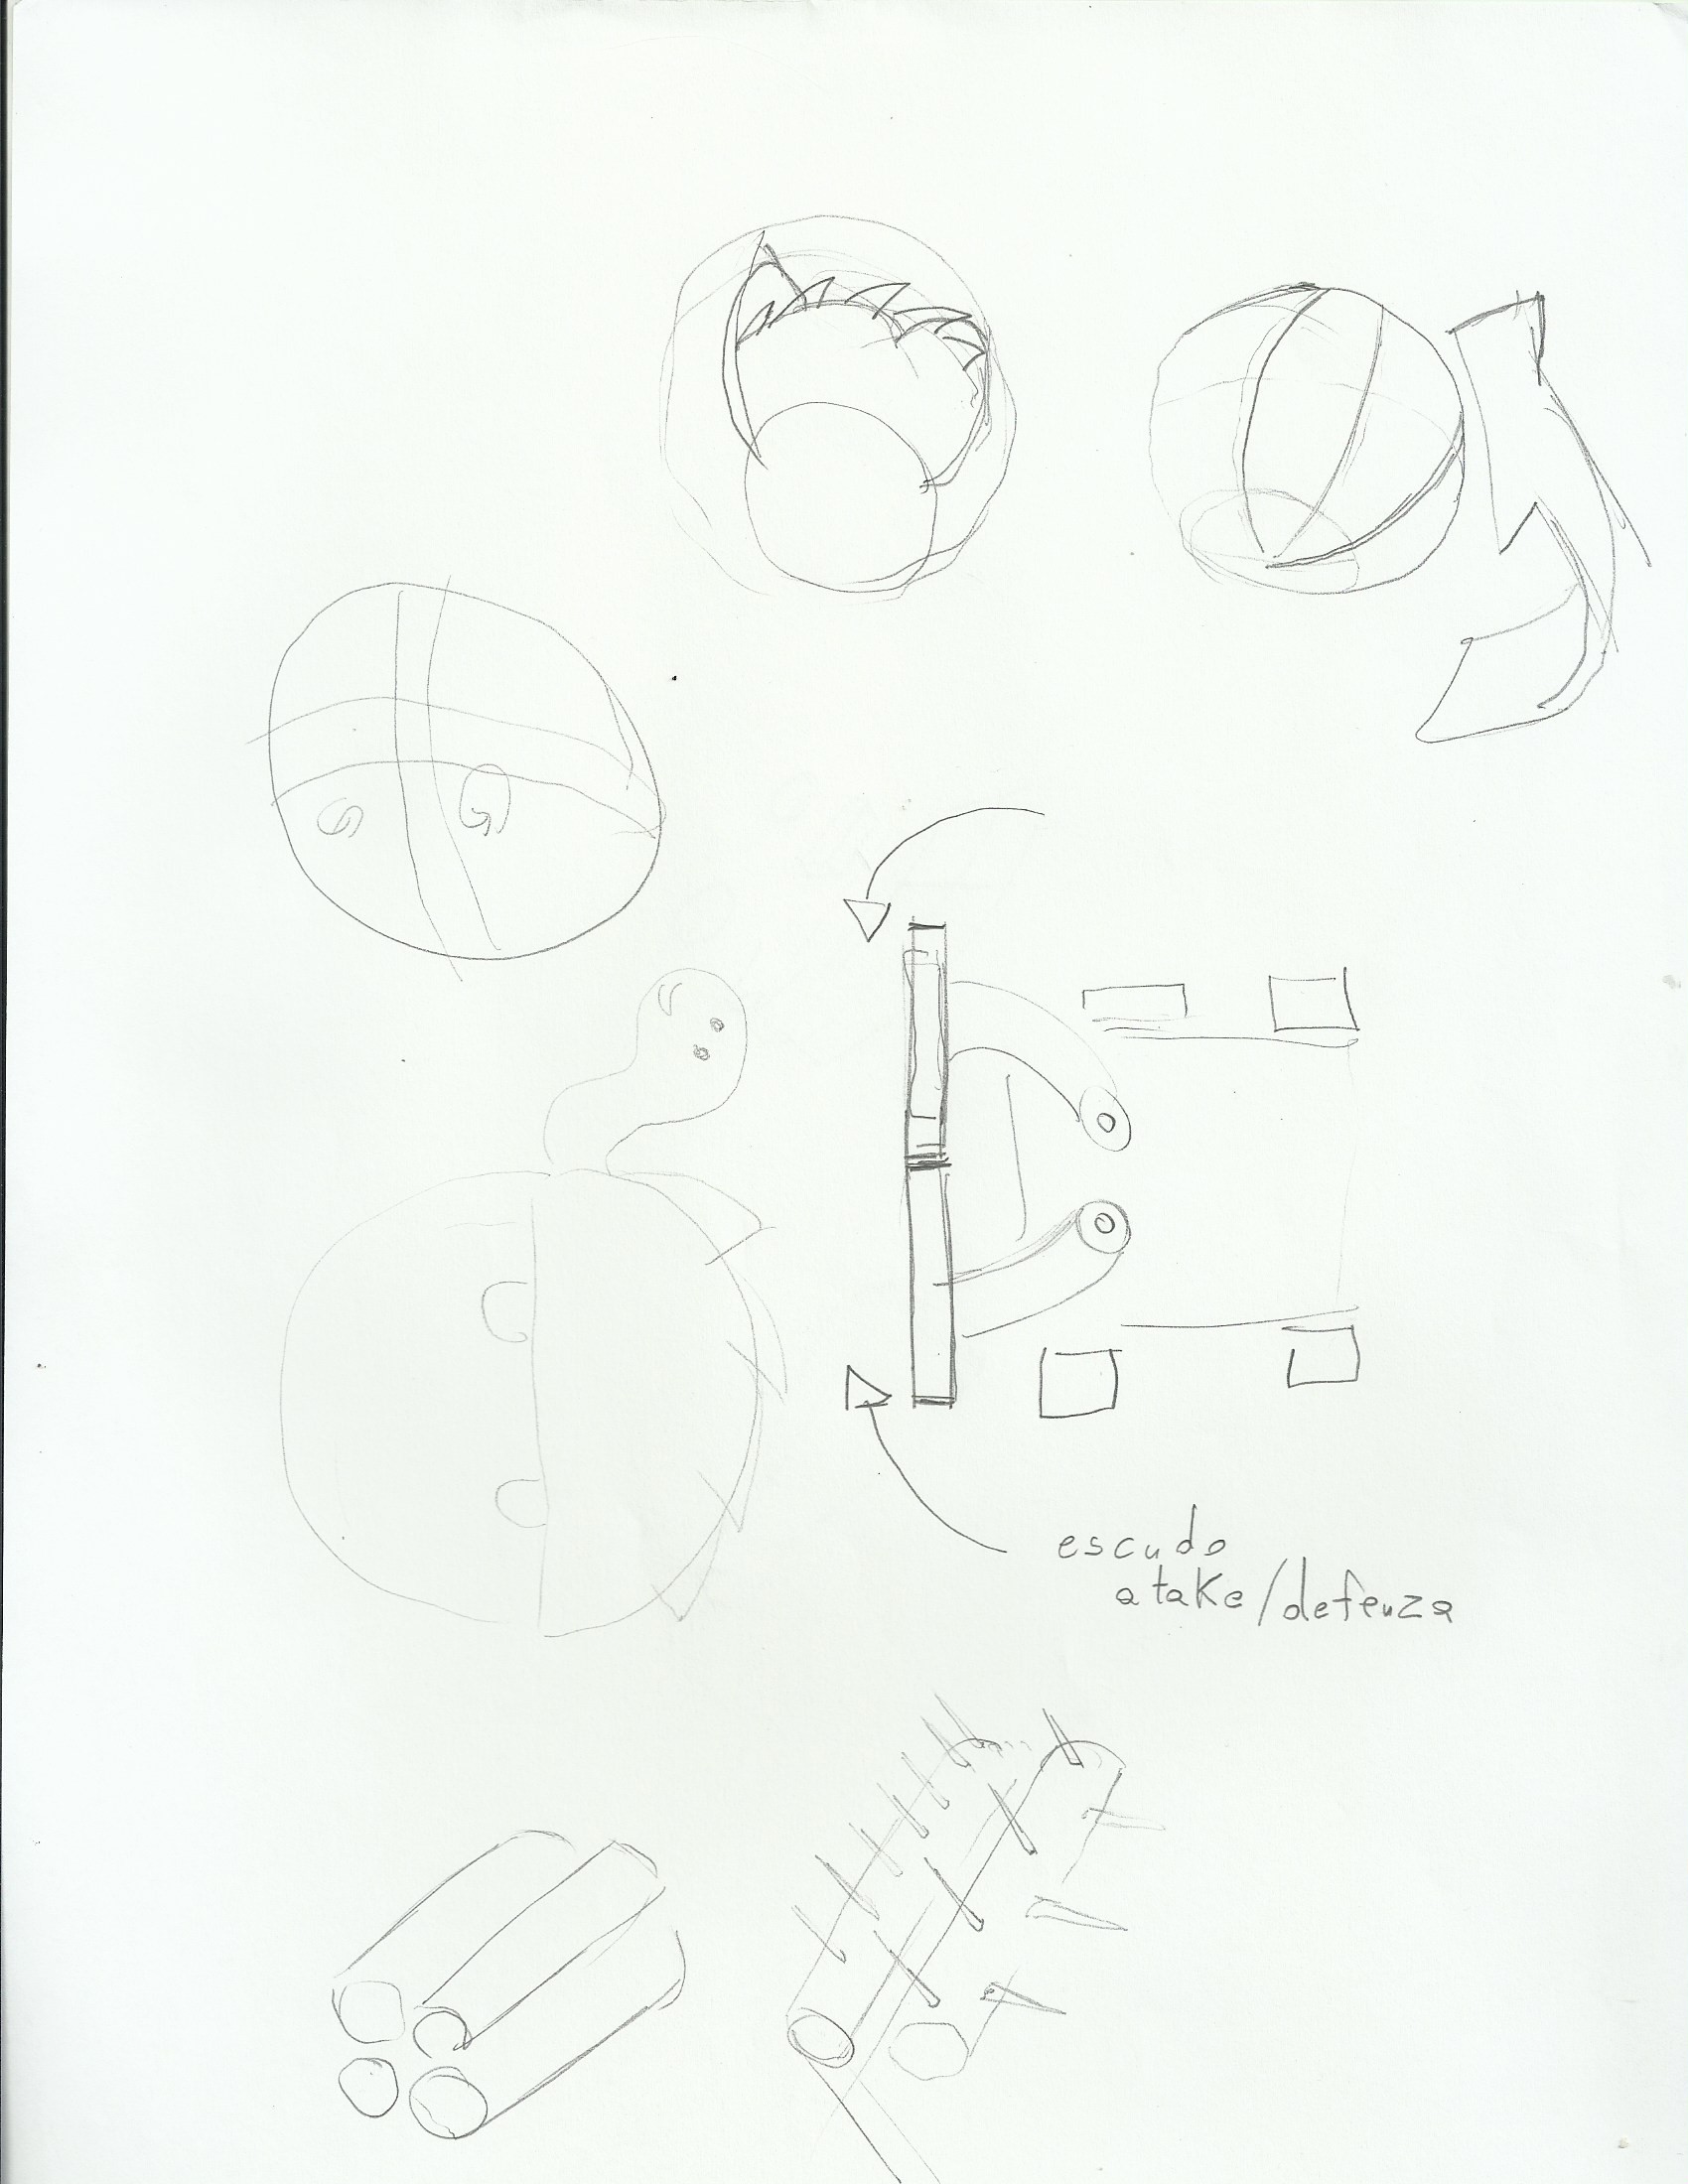 escudo
atake/defenza